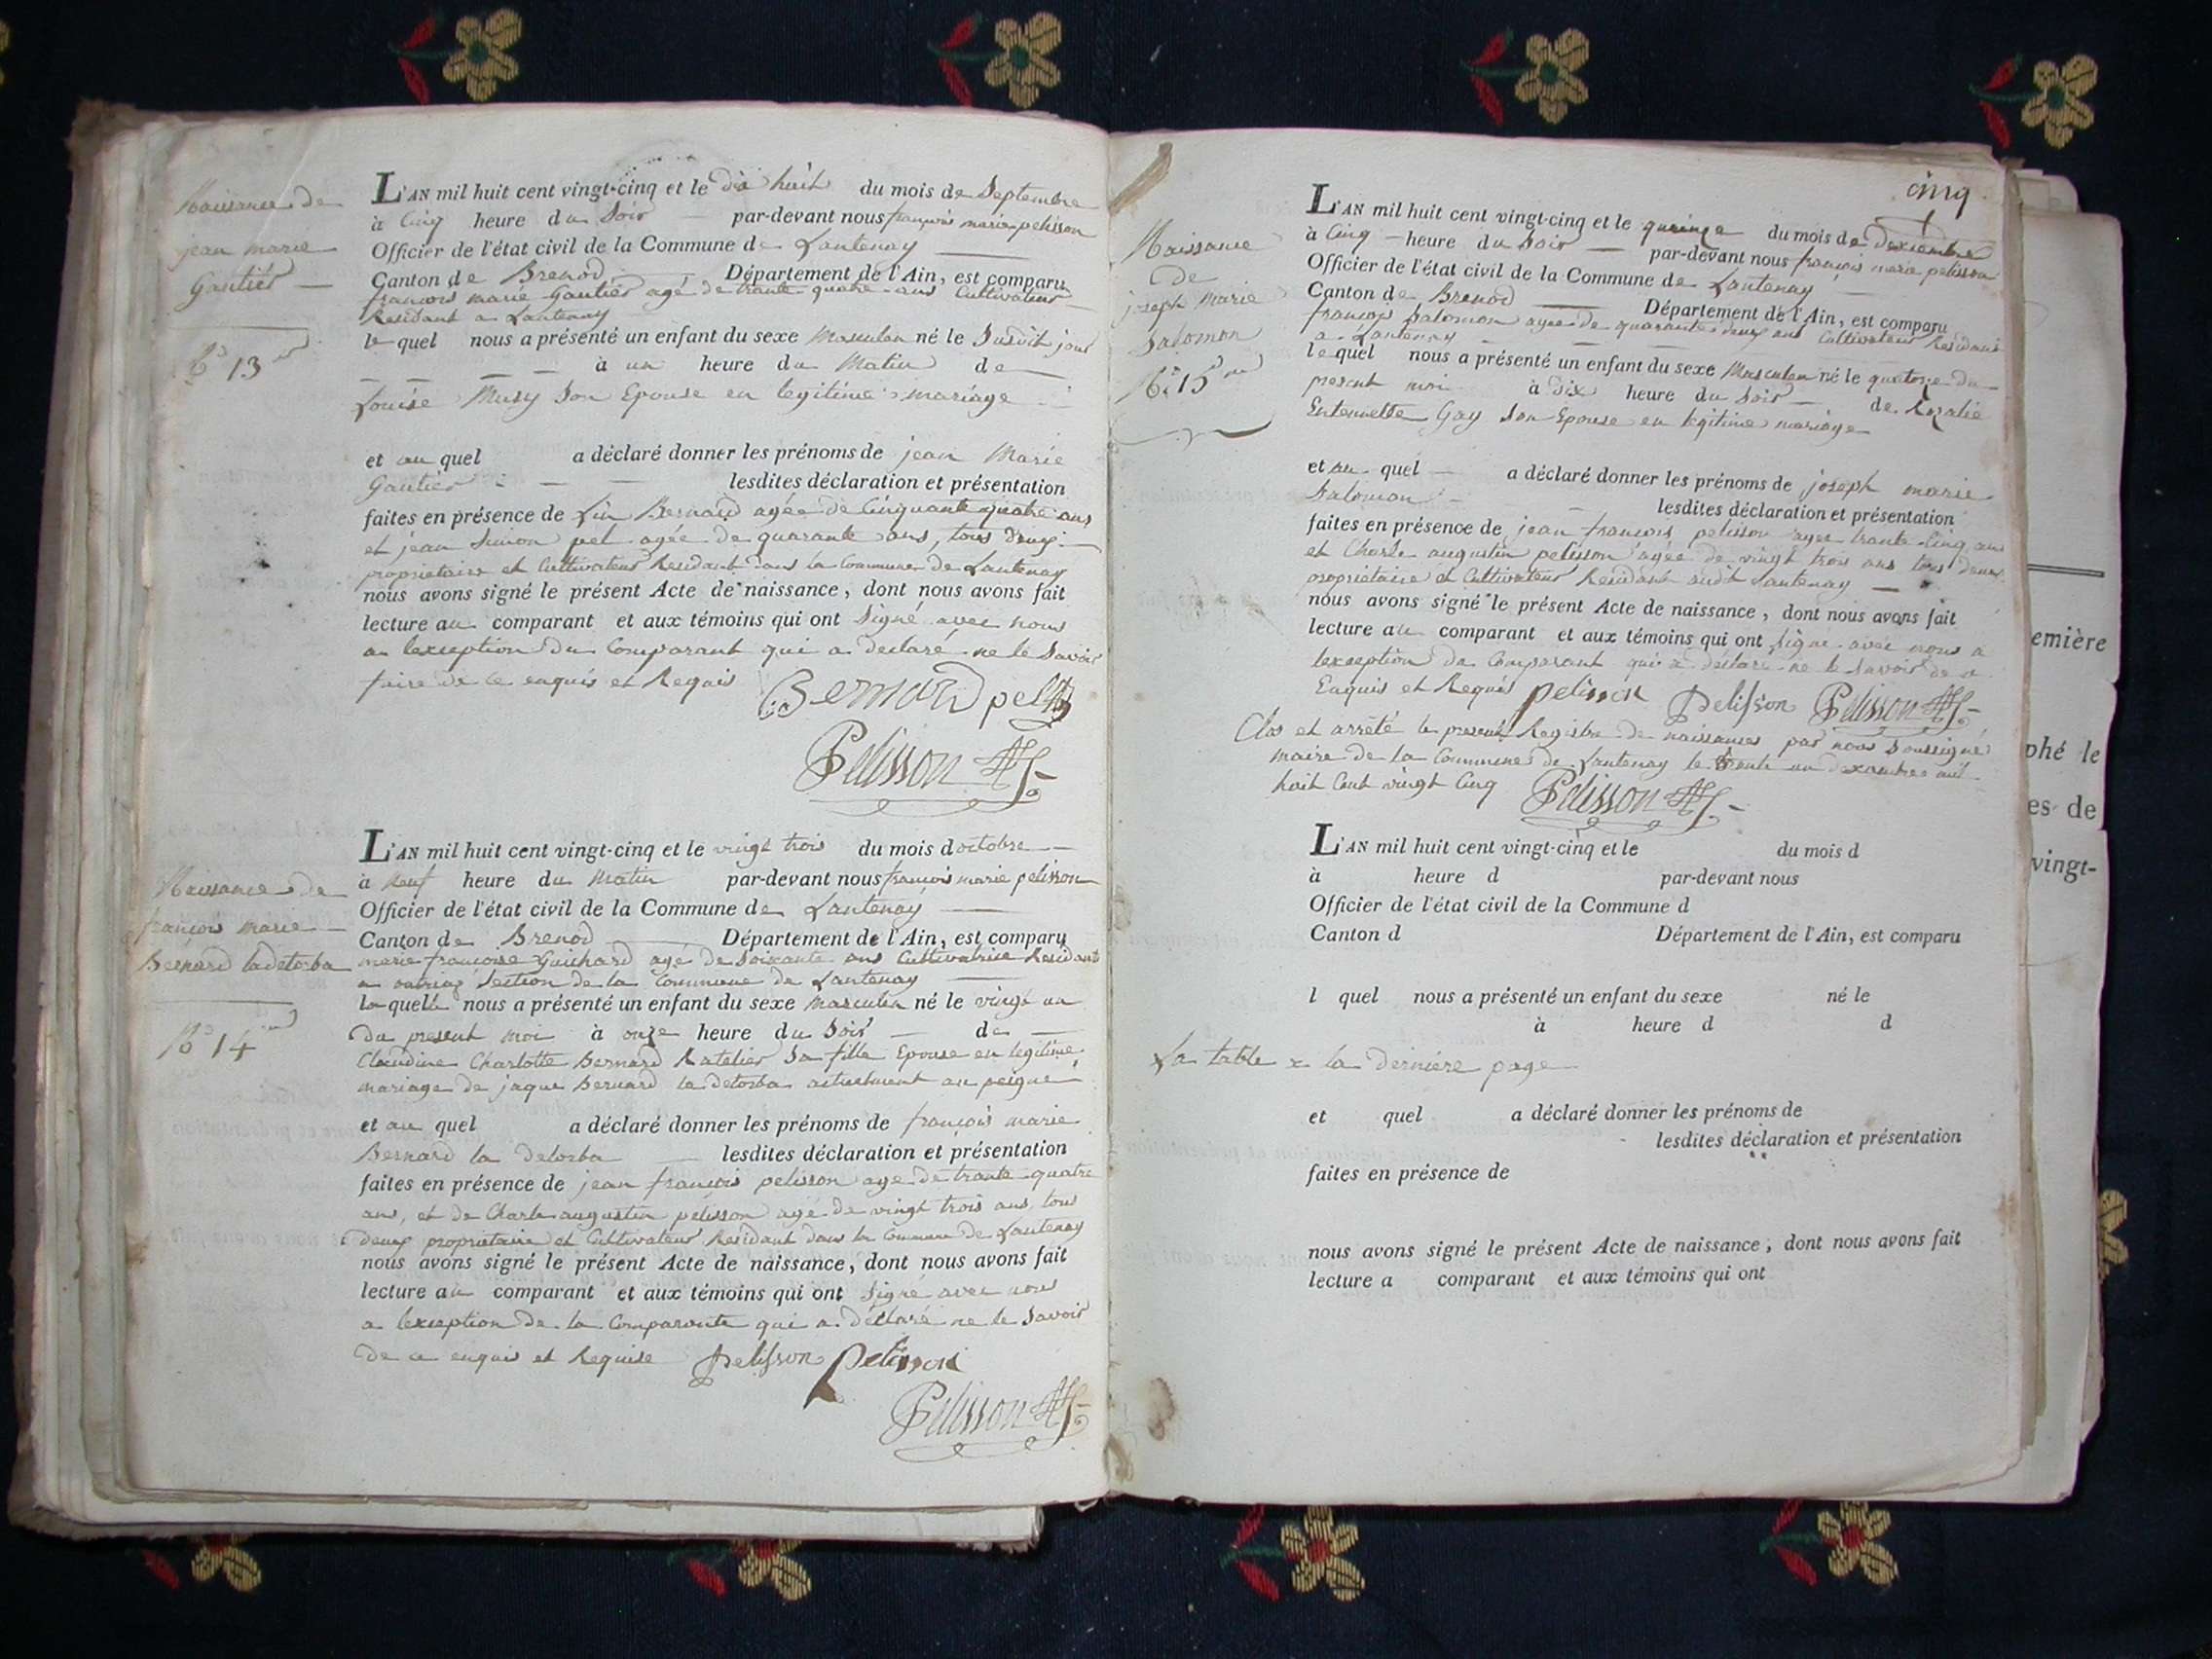 Naissance de
jean marie
Gautier
N° 13
L'AN mil huit cent vingt-cinq et le dix huit du mois de Septembre
à Cinq heure du Soir par-devant nous françois marie pelisson
Officier de l'état civil de la Commune de Lantenay
Canton de Brenod Département de l'Ain, est comparu
francois marie Gautier agé de trante quatre ans Cultivateur
Residant a Lantenay
le quel nous a présenté un enfant du sexe Masculen né le Susdit jour
à un heure du Matin de
Louise Musy Son Epouse en legitime mariage
et au quel a déclaré donner les prénoms de jean Marie
Gautier lesdites déclaration et présentation
faites en présence de Bernard agée de Cinquante quatre ans
et jean Simon pet agée de quarante ans, tous deux
proprietaire et Cultivateur Residant dans la Commune de Lantenay
nous avons signé le présent Acte de naissance, dont nous avons fait
lecture au comparant et aux témoins qui ont Signé avec nous
a lexception du Comparant qui a declaré ne le Savoir
faire de ce enquis et Requis Bernard pet
Pelisson
Naissance de
françois marie
Bernard ladetorba
N° 14
L'AN mil huit cent vingt-cinq et le vingt trois du mois doctobre
à neuf heure du Matin par-devant nous françois marie pelisson
Officier de l'état civil de la Commune de Lantenay
Canton de Brenod Département de l'Ain, est comparu
marie françoise Guichard agé de Soixante ans Cultivatrice Residant
a outriaz Section de la Commune de Lantenay
la quelle nous a présenté un enfant du sexe masculen né le vingt un
du present moi à onze heure du Soir de
Claudine Charlotte Bernard Ratelier Sa fille Epouse en legitime
mariage de jaque Bernard la detorba actuelment au peigne
et au quel a déclaré donner les prénoms de françois marie
Bernard la detorba lesdites déclaration et présentation
faites en présence de jean françois pelisson age de trante quatre
ans, et de Charle augustin pelisson agé de vingt trois ans, tous
deux proprietaire et Cultivateur Residant dans la Commune de Lantenay
nous avons signé le présent Acte de naissance, dont nous avons fait
lecture au comparant et aux témoins qui ont Signé avec nous
a lexception de la Comparante qui a déclaré ne le Savoir
de ce enquis et Requise Pelisson pelisson
Pelisson
cinq
Naissance
de
joseph Marie
Salomon
N° 15
L'AN mil huit cent vingt-cinq et le quinze du mois de dexcembre
à Cinq heure du Soir par-devant nous françois marie pelisson
Officier de l'état civil de la Commune de Lantenay
Canton de Brenod Département de l'Ain, est comparu
françois Salomon agee de quarante deux ans Cultivateur Residant
a Lantenay
le quel nous a présenté un enfant du sexe Masculen né le quatorze du
present moi à dix heure du Soir de Rozalie
Entennette Gay Son Epouse en legitime mariage
et au quel a déclaré donner les prénoms de joseph marie
Salomon lesdites déclaration et présentation
faites en présence de jean françois pelisson agee trante Cinq ans
et Charle augustin pelisson agée de vingt trois ans tous deux
proprietaire et Cultivateur Residant audit Lantenay
nous avons signé le présent Acte de naissance, dont nous avons fait
lecture au comparant et aux témoins qui ont Signé avec nous a
lexception du Comparant qui a declaré ne le Savoir de ce
Enquis et Requis pelisson Pelisson Pelisson
Clos et arrêté le present Registre de naissances par nous Soussigné
maire de la Commune de Lantenay le trente un dexcembre mil
huit Cent vingt Cinq Pelisson
L'AN mil huit cent vingt-cinq et le du mois d
à heure d par-devant nous
Officier de l'état civil de la Commune d
Canton d Département de l'Ain, est comparu
l quel nous a présenté un enfant du sexe né le
à heure d d
La table a la derniere page
et quel a déclaré donner les prénoms de
lesdites déclaration et présentation
faites en présence de
nous avons signé le présent Acte de naissance, dont nous avons fait
lecture a comparant et aux témoins qui ont
emière
phé le
es de
vingt-